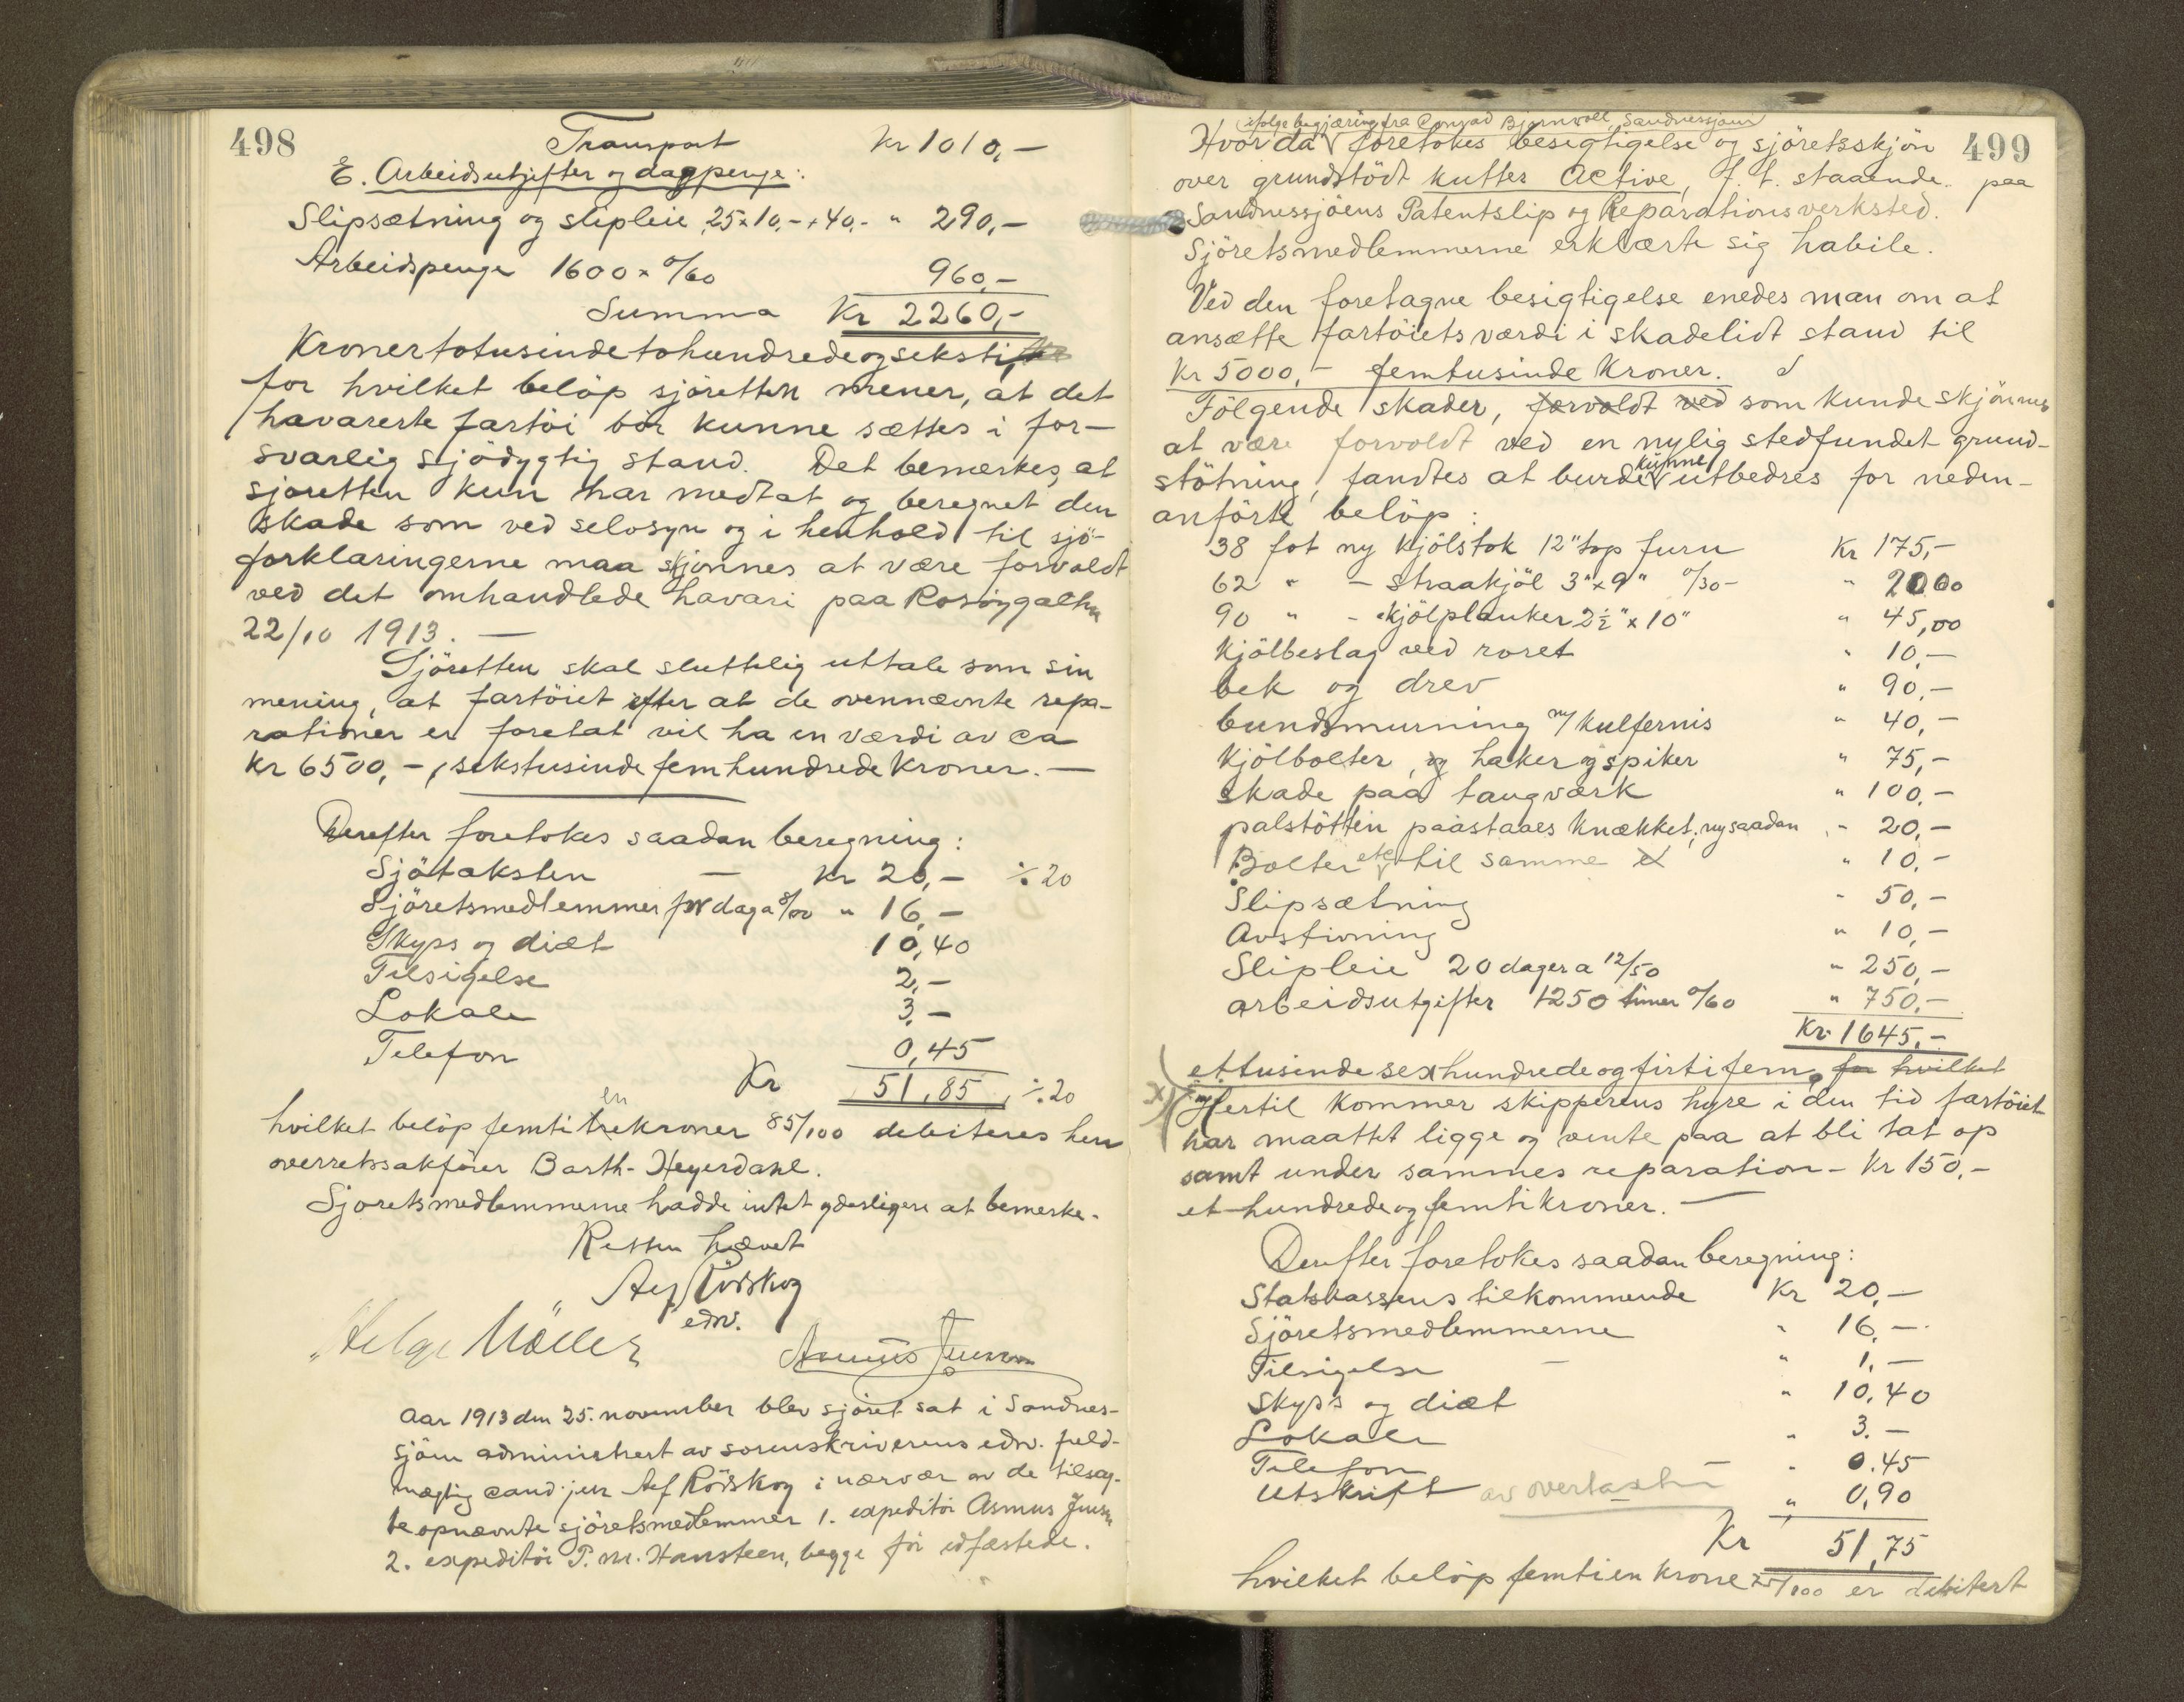 498
Transport Kr 1010,-
E. Arbeidsutgifter og dagpenge:
Slipsætning og slipleie 25x10,-+40,- " 290,-
Arbeidspenge 1600 x 0/60 960,-
Summa Kr 2260,-
Kroner totusinde tohundrede og seksti
for hvilket beløp sjöretten mener, at det
havarerte fartöi bör kunne sættes i for-
svarlig sjödygtig stand. Det bemerkes, at
sjöretten kun har medtat og beregnet den
skade som ved selvsyn og i henhold til sjö-
forklaringerne maa skjönnes at være forvoldt
ved det omhandlede havari paa
22/10 1913. —
Sjöretten skal sluttelig uttale som sin
mening, at fartöiet efter at de ovennævnte repa-
rationer er foretat vil ha en værdi av ca
Kr 6500,-, sekstusinde femhundrede Kroner. —
Derefter foretokes saadan beregning:
Sjötaksten — Kr 20,- ÷20
Sjöretsmedlemmer pr dag a 8/00 " 16,-
Skyss og diæt 10,40
Tilsigelse 2,-
Lokale 3,-
Telefon 0,45
Kr 51,85 ÷20
hvilket belöp femti en kroner 85/100 debiteres herr
overretssakförer Barth-Heyerdahl.
Sjöretsmedlemmerne hadde intet yderligere at bemerke.
Retten hævet
Alf Rödskog
edv.
Helge Möller Asmus Jensen
Aar 1913 den 25. november blev sjöret sat i Sandnes-
sjöen administrert av sorenskriverens edv. fuld-
mægtig cand. jur Alf Rödskog i nærvær av de tilsag-
te opnævnte sjöretsmedlemmer 1. expeditör Asmus Jensen
2. expeditör P. M. Hansteen, begge för edfæstede.
499
ifölge begjæring fra Conrad Bjørnvoll, Sandnessjøen
Hvor da foretokes besigtigelse og sjöretsskjön
over grundstödt kutter Active, f. t. staaende paa
Sandnessjöens Patentslip og Reparationsverksted.
Sjöretsmedlemmerne erklærte sig habile.
Ved den foretagne besigtigelse enedes man om at
ansætte fartöiets værdi i skadelidt stand til
Kr 5000,- femtusinde Kroner.
Fölgende skader, forvoldt ved som kunde skjönnes
at være forvoldt ved en nylig stedfundet grund-
stötning, fandtes at burde kunne utbedres for neden-
anförte belöp:
38 fot ny kjölstok 12" top furu Kr 175,-
62 " - straakjöl 3"x9" 0/30 - " 20.00
90 " - kjölplanker 2½"x10" " 45,00
Kjölbeslag ved roret " 10,-
bek og drev " 90,-
bundsmurning m/ kulfernis " 40,-
Kjölbolter, og haker og spiker " 75,-
skade paa taugværk " 100,-
palstötten paastaaes knækket, ny saadan " 20,-
Bolter etc til samme " 10,-
Slipsætning " 50,-
Avstivning " 10,-
Slipleie 20 dager a 12/50 " 250,-
arbeidsutgifter 1250 timer 0/60 " 750,-
Kr. 1645,-
ettusinde sexhundrede og firti fem, for hvilket
x) Hertil kommer skipperens hyre i den tid fartöiet
har maattet ligge og vente paa at bli tat op
samt under sammes reparation - Kr 150,-
et hundrede og femti kroner. —
Derefter foretokes saadan beregning:
Statskassens tilkommende Kr 20,-
Sjöretsmedlemmerne " 16,-
Tilsigelse — " 1,-
Skyss og diæt " 10,40
Lokale " 3.-
Telefon — " 0.45
Utskrift av overtaksten " 0,90
Kr 51,75
hvilket belöp femtien krone 75/100 er debitert